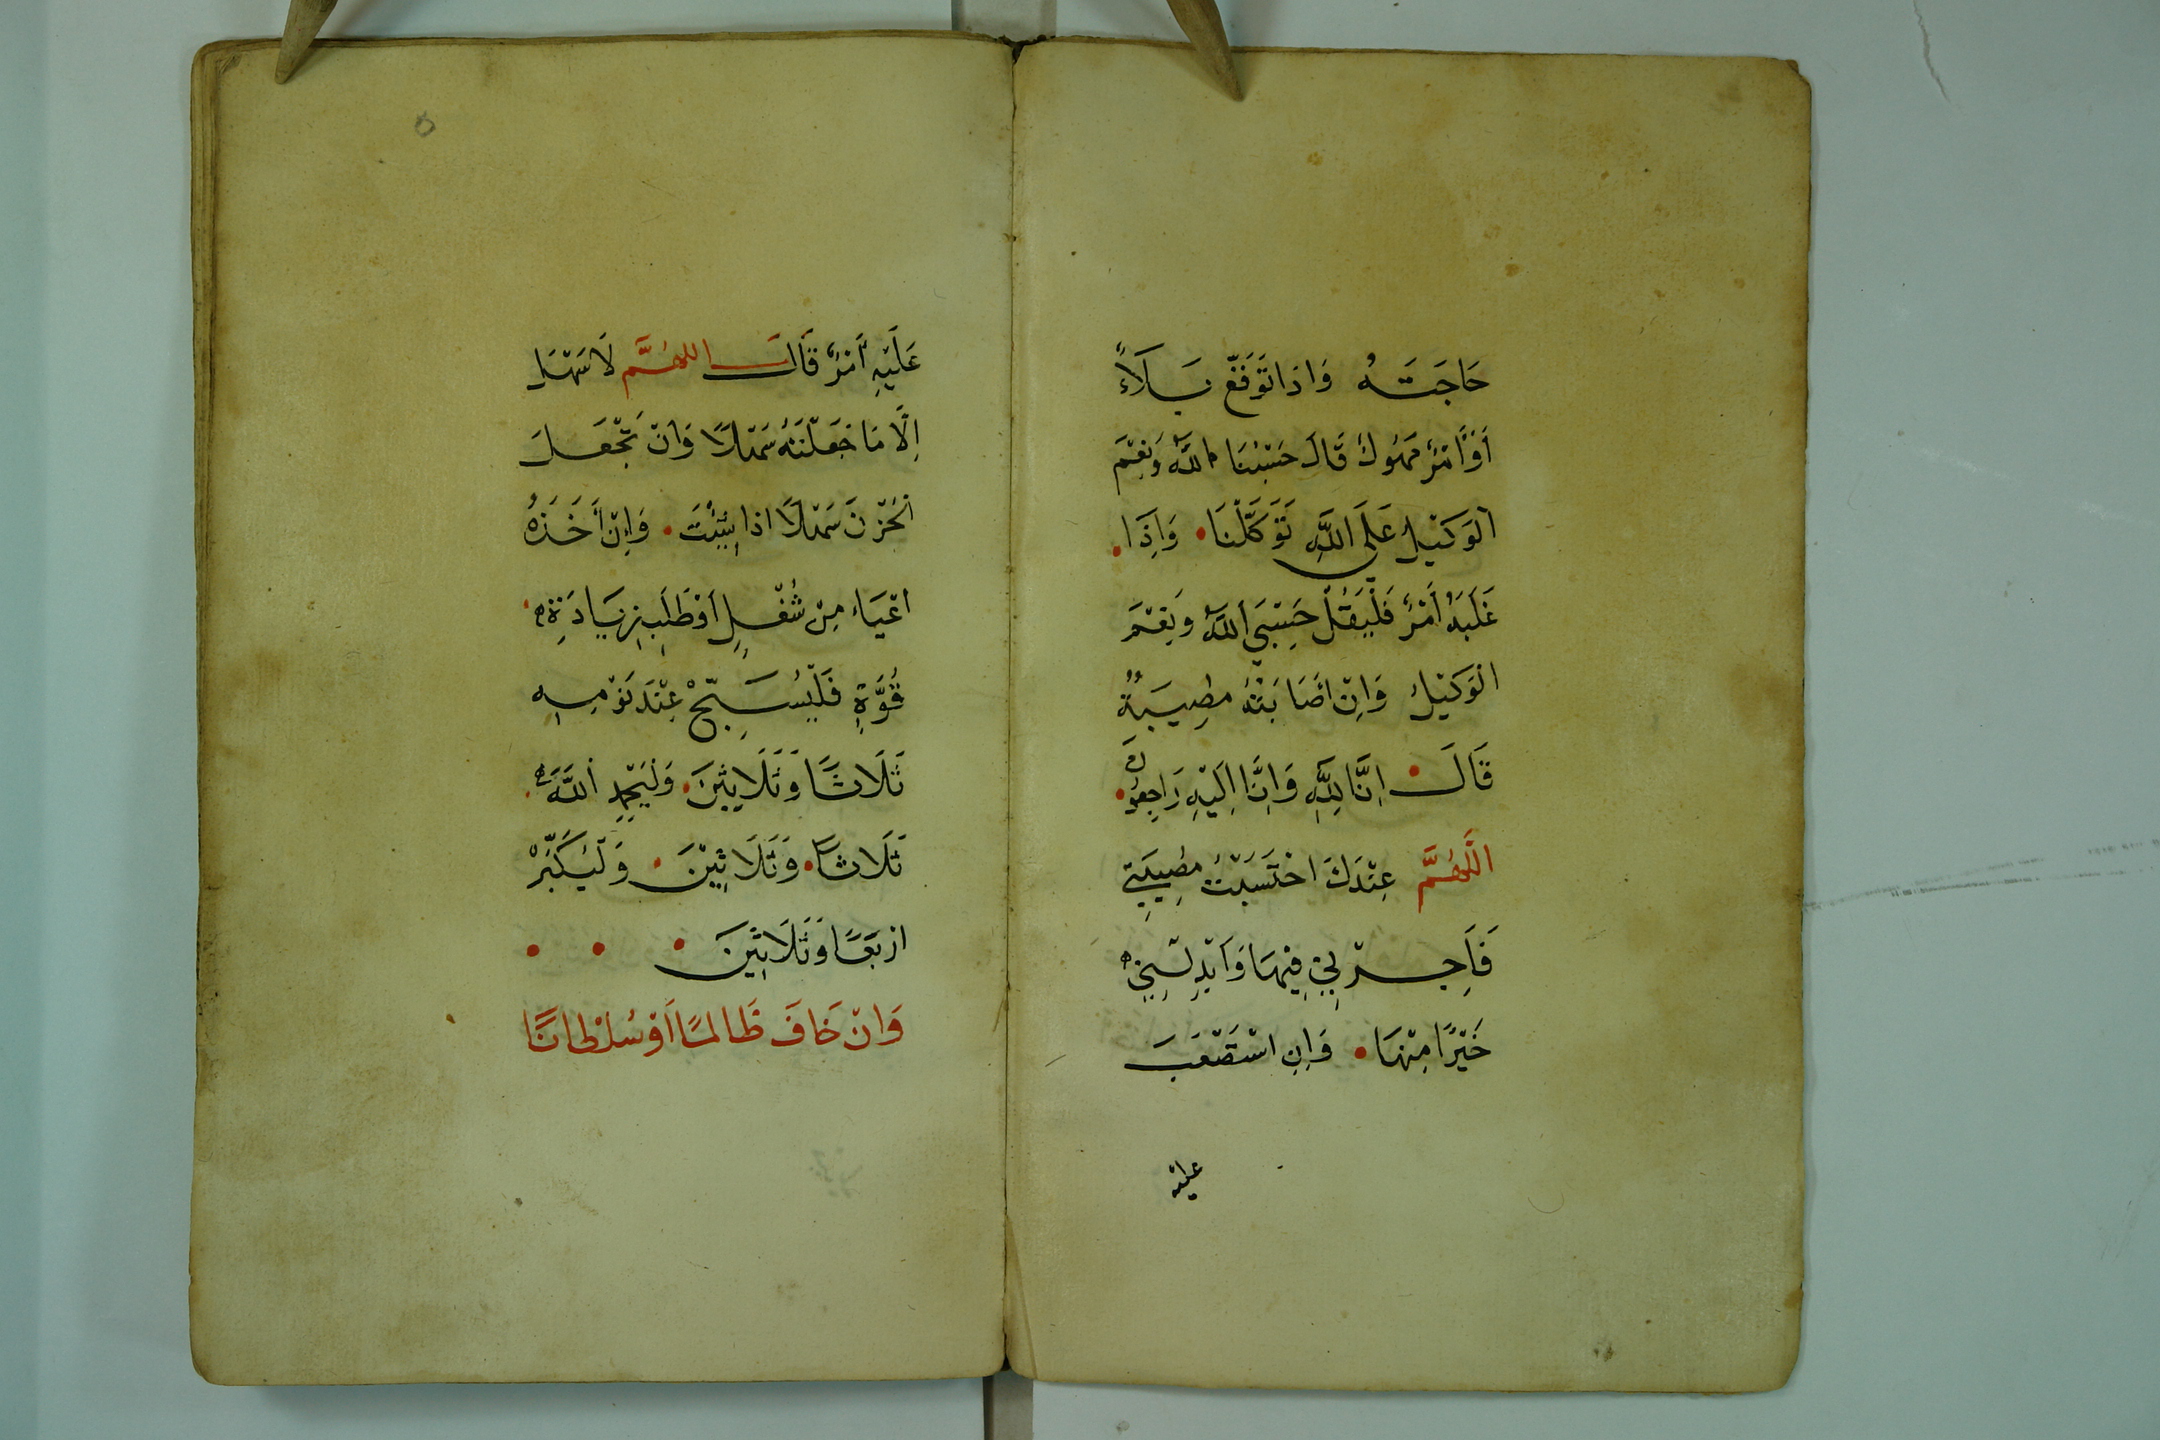 حَاجَتَهُ وَاذا تَوَقَّعَ بَلَاءً
اَوْ اَمْرٌ مَهُوكٌ قَالَ حَسْبُنَا اللهُ وَنِعْمَ
الْوَكِيْلُ عَلَى اللَّهِ تَوَكَّلْنَا • وَاِذَا •
غَلَبَهُ اَمْرٌ فَلْيَقُلْ حَسْبِيَ اللَّهُ وَنِعْمَ
الْوَكِيْلُ وَاِنْ اَصَابَتْهُ مصِيبَةٌ
قَالَ • اِنَّا لِلَّهِ وَاِنَّا اِلَيْهِ رَاجِعُونَ •
اللَّهُمَّ عِنْدَكَ احْتَسَبْتُ مصِيبَتِي
فَاَجِرْنِي فِيْهَا وَاَبْدِلْنِي
خَيْرًا مِنْهَا • وَاِنِ اسْتَصْعَبَ
عليْه
٥
عَلَيْهِ اَمْرٌ قَالَ اللهُمَّ لَا سَهْلَ
اِلَّا مَا جَعَلْتَهُ سَهْلًا وَاَنْ تَجْعَلَ
الْحُزْنَ سَهْلًا اذا شِئْتَ • وَاِنْ اَخَذَهُ
اعْيَاء مِنْ شُغْلٍ اَوْ طَلَبِ زِيَادَةِ
قُوَّةٍ فَلْيُسَبِّحْ عِنْدَ نَوْمِهِ
ثَلَاثًا وَثَلَاثِيْنَ • وَلْيَحْمِدِ اللَّهَ
ثَلَاثًا • وَثَلَاثِيْنَ • وَلْيُكَبِّرْ
ارْبَعًا وَثَلَاثِيْنَ • • •
وَانْ خَافَ ظَالمًا اَوْ سُلْطانًا